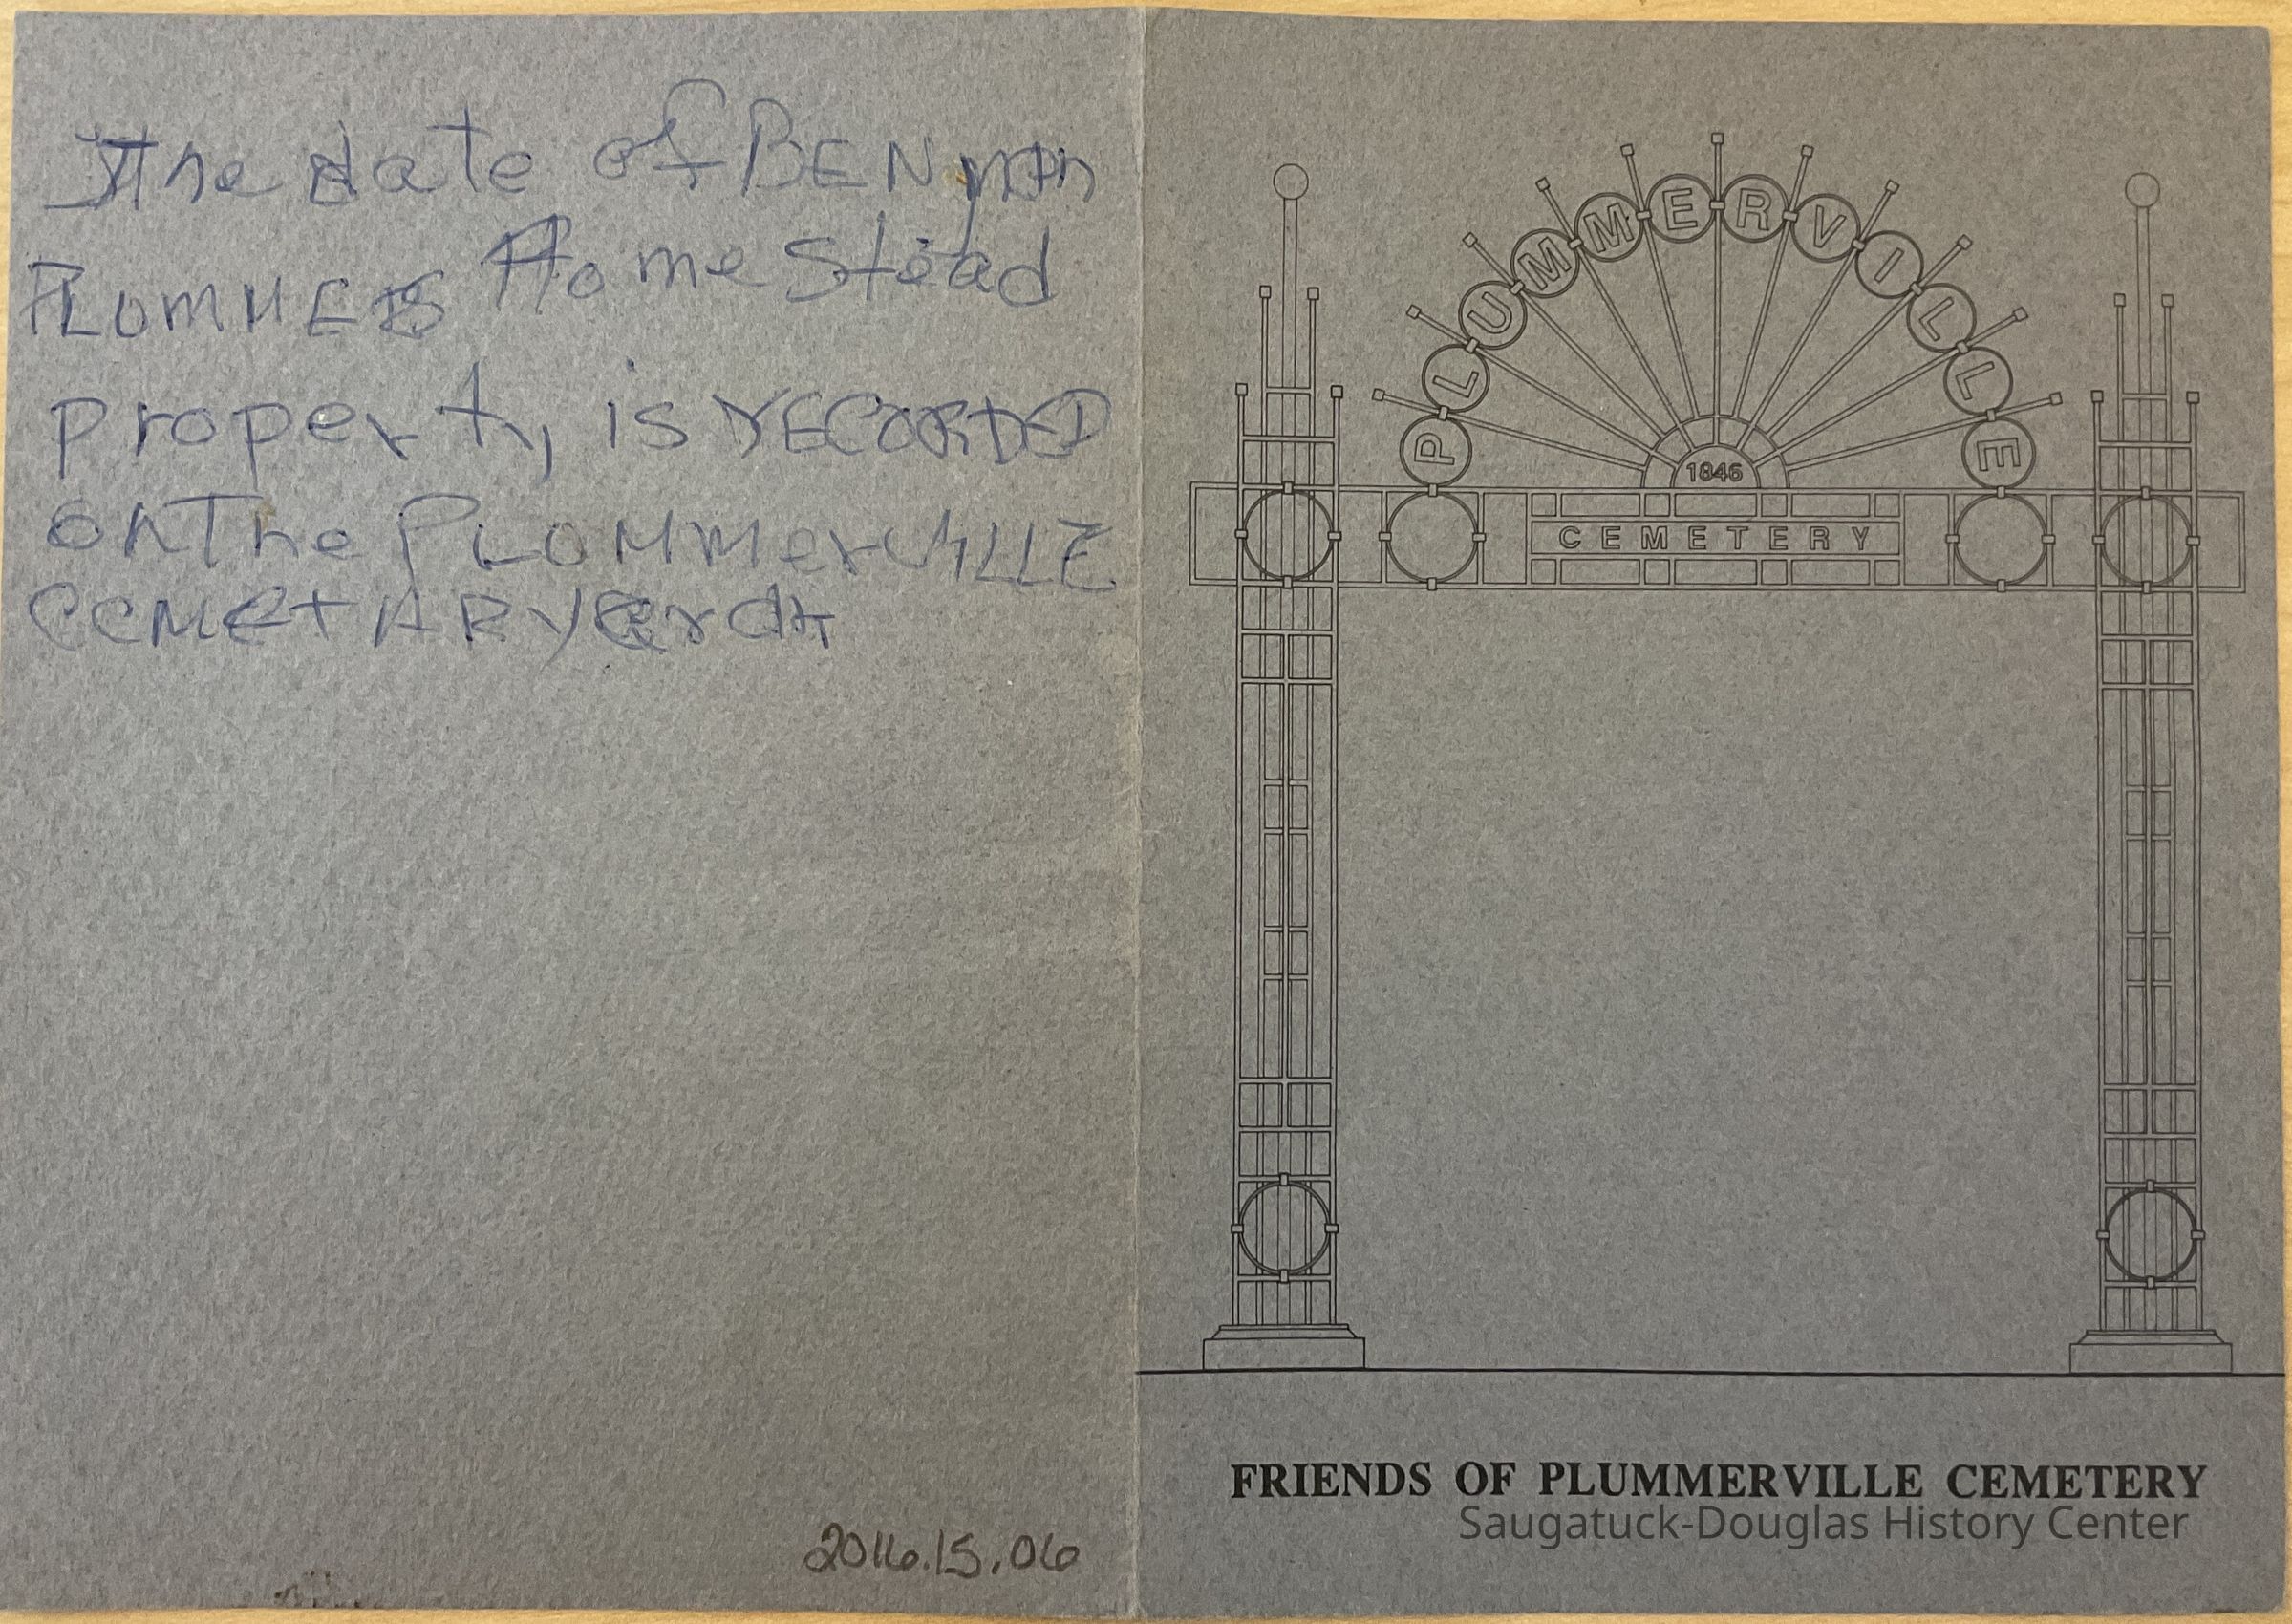 The date of BENjmin
PLOMMERS Home Stead
property is RECORDED
on The PLOMMerVILLE
CEMETARY
2016.15.06
PLUMMERVILLE
1846
CEMETERY
FRIENDS OF PLUMMERVILLE CEMETERY
Saugatuck-Douglas History Center